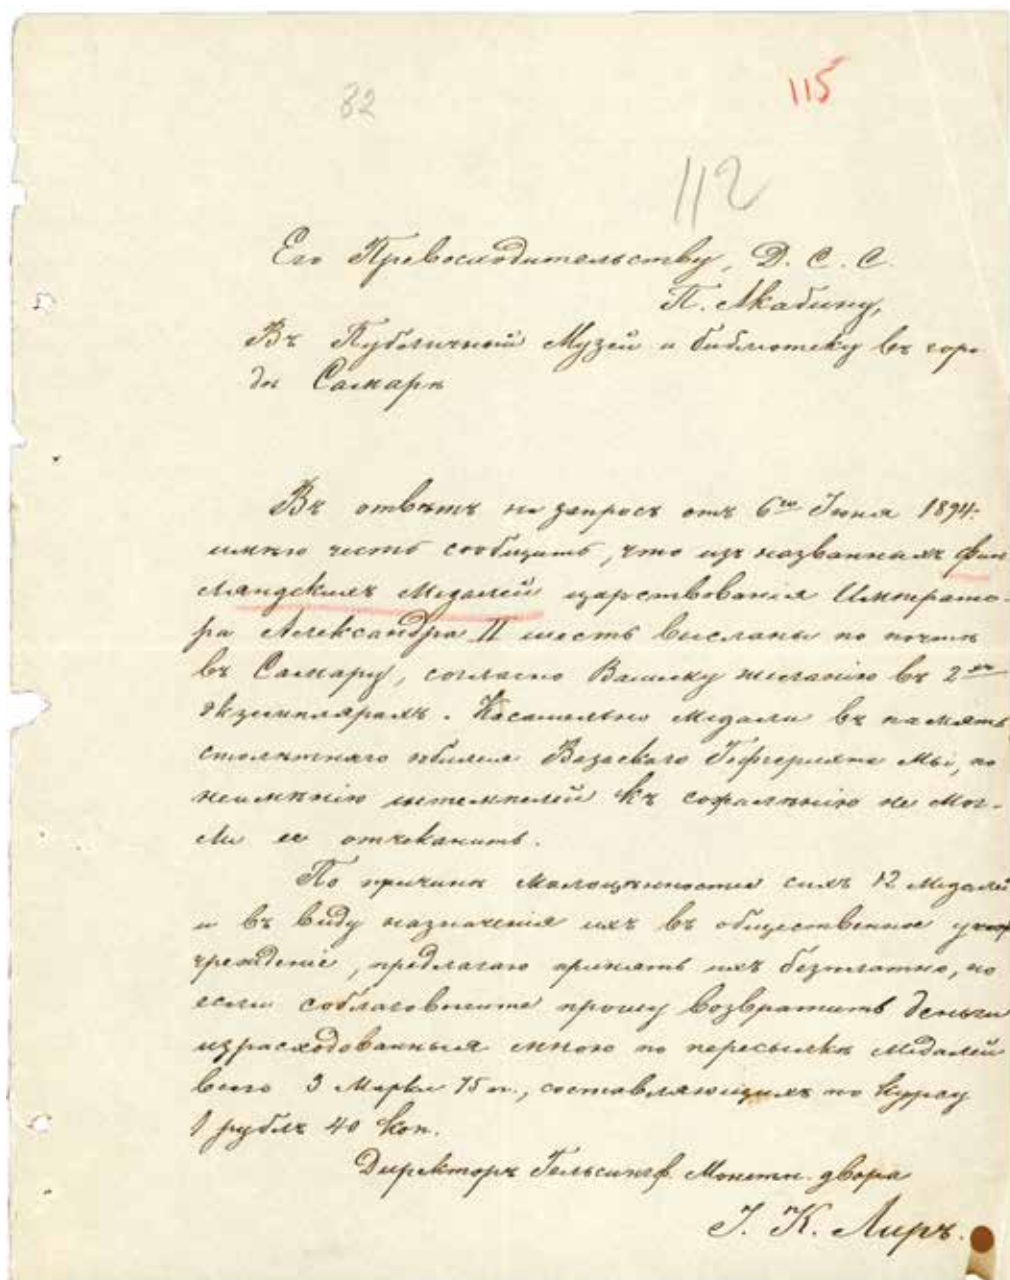 82
115
112
Его Превосходительству, Д. С. С.
П. Алабину,
Въ Публичный Музей и библіотеку въ горо
дѣ Самарѣ
Въ отвѣтъ на запросъ отъ 6го Іюня 1894.
имѣю честь сообщить, что изъ названныхъ Фин
ляндскихъ Медалей царствованія Императо-
ра Александра II шесть высланы по почтѣ
въ Самару, согласно Вашему желанію въ 2хъ
экземплярахъ. Касательно Медали въ память
столѣтняго юбилея Вазаскаго Гофгерихта Мы, по
неимѣнію штемпелей къ сожалѣнію не мог-
ли ее отчеканить.
По причинѣ Малоцѣнности сихъ 12 Медалей
и въ виду назначенія ихъ въ общественное
чрежденіе, предлагаю принять ихъ безплатно, но
если соблаговолите прошу возвратить деньги
израсходованныя мною по пересылкѣ Медалей
всего 3 Марки 75 п., составляющихъ по курсу
1 рубль 40 коп.
Директоръ Гельсингф. Монетн. двора
І. К. Лиръ.